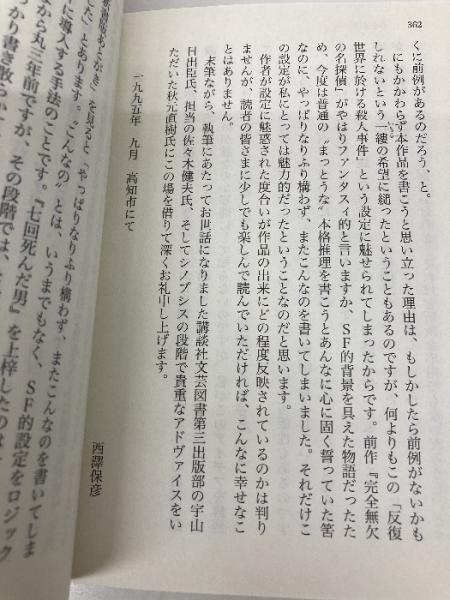 362
くに前例があるのだろう、と。
にもかかわらず本作品を書こうと思い立った理由は、もしかしたら前例がないかも
しれないという一縷の希望に縋ったということもあるのですが、何よりもこの「反復
世界に於ける殺人事件」という設定に魅せられてしまったからです。前作『完全無欠
の名探偵』がやはりファンタスィ的と言いますか、SF的背景を具えた物語だったた
め、今度は普通の〝まっとうな〟本格推理を書こうとあんなに心に固く誓っていた筈
なのに、やっぱりなりふり構わず、またこんなのを書いてしまいました。それだけこ
の設定が私にとっては魅力的だったということなのだと思います。
作者が設定に魅惑された度合いが作品の出来にどの程度反映されているのかは判り
ませんが、読者の皆さまに少しでも楽しんで読んでいただければ、こんなに幸せなこ
とはありません。
末筆ながら、執筆にあたってお世話になりました講談社文芸図書第三出版部の宇山
日出臣氏、担当の佐々木健夫氏、そしてシノプシスの段階で貴重なアドヴァイスをい
ただいた秋元直樹氏にこの場を借りて深くお礼申し上げます。
一九九五年 九月 高知市にて
西澤保彦
あとがき」を見ると、やっぱりなりふり構わず、またこんなのを書いてしま
した」とあります。こんなの〟とは、いうまでもなく、SF的設定をロジック
に導入する手法のことです。『七回死んだ男』を上梓したのは
から丸三年前ですが、その段階では、
っかり書き散らか